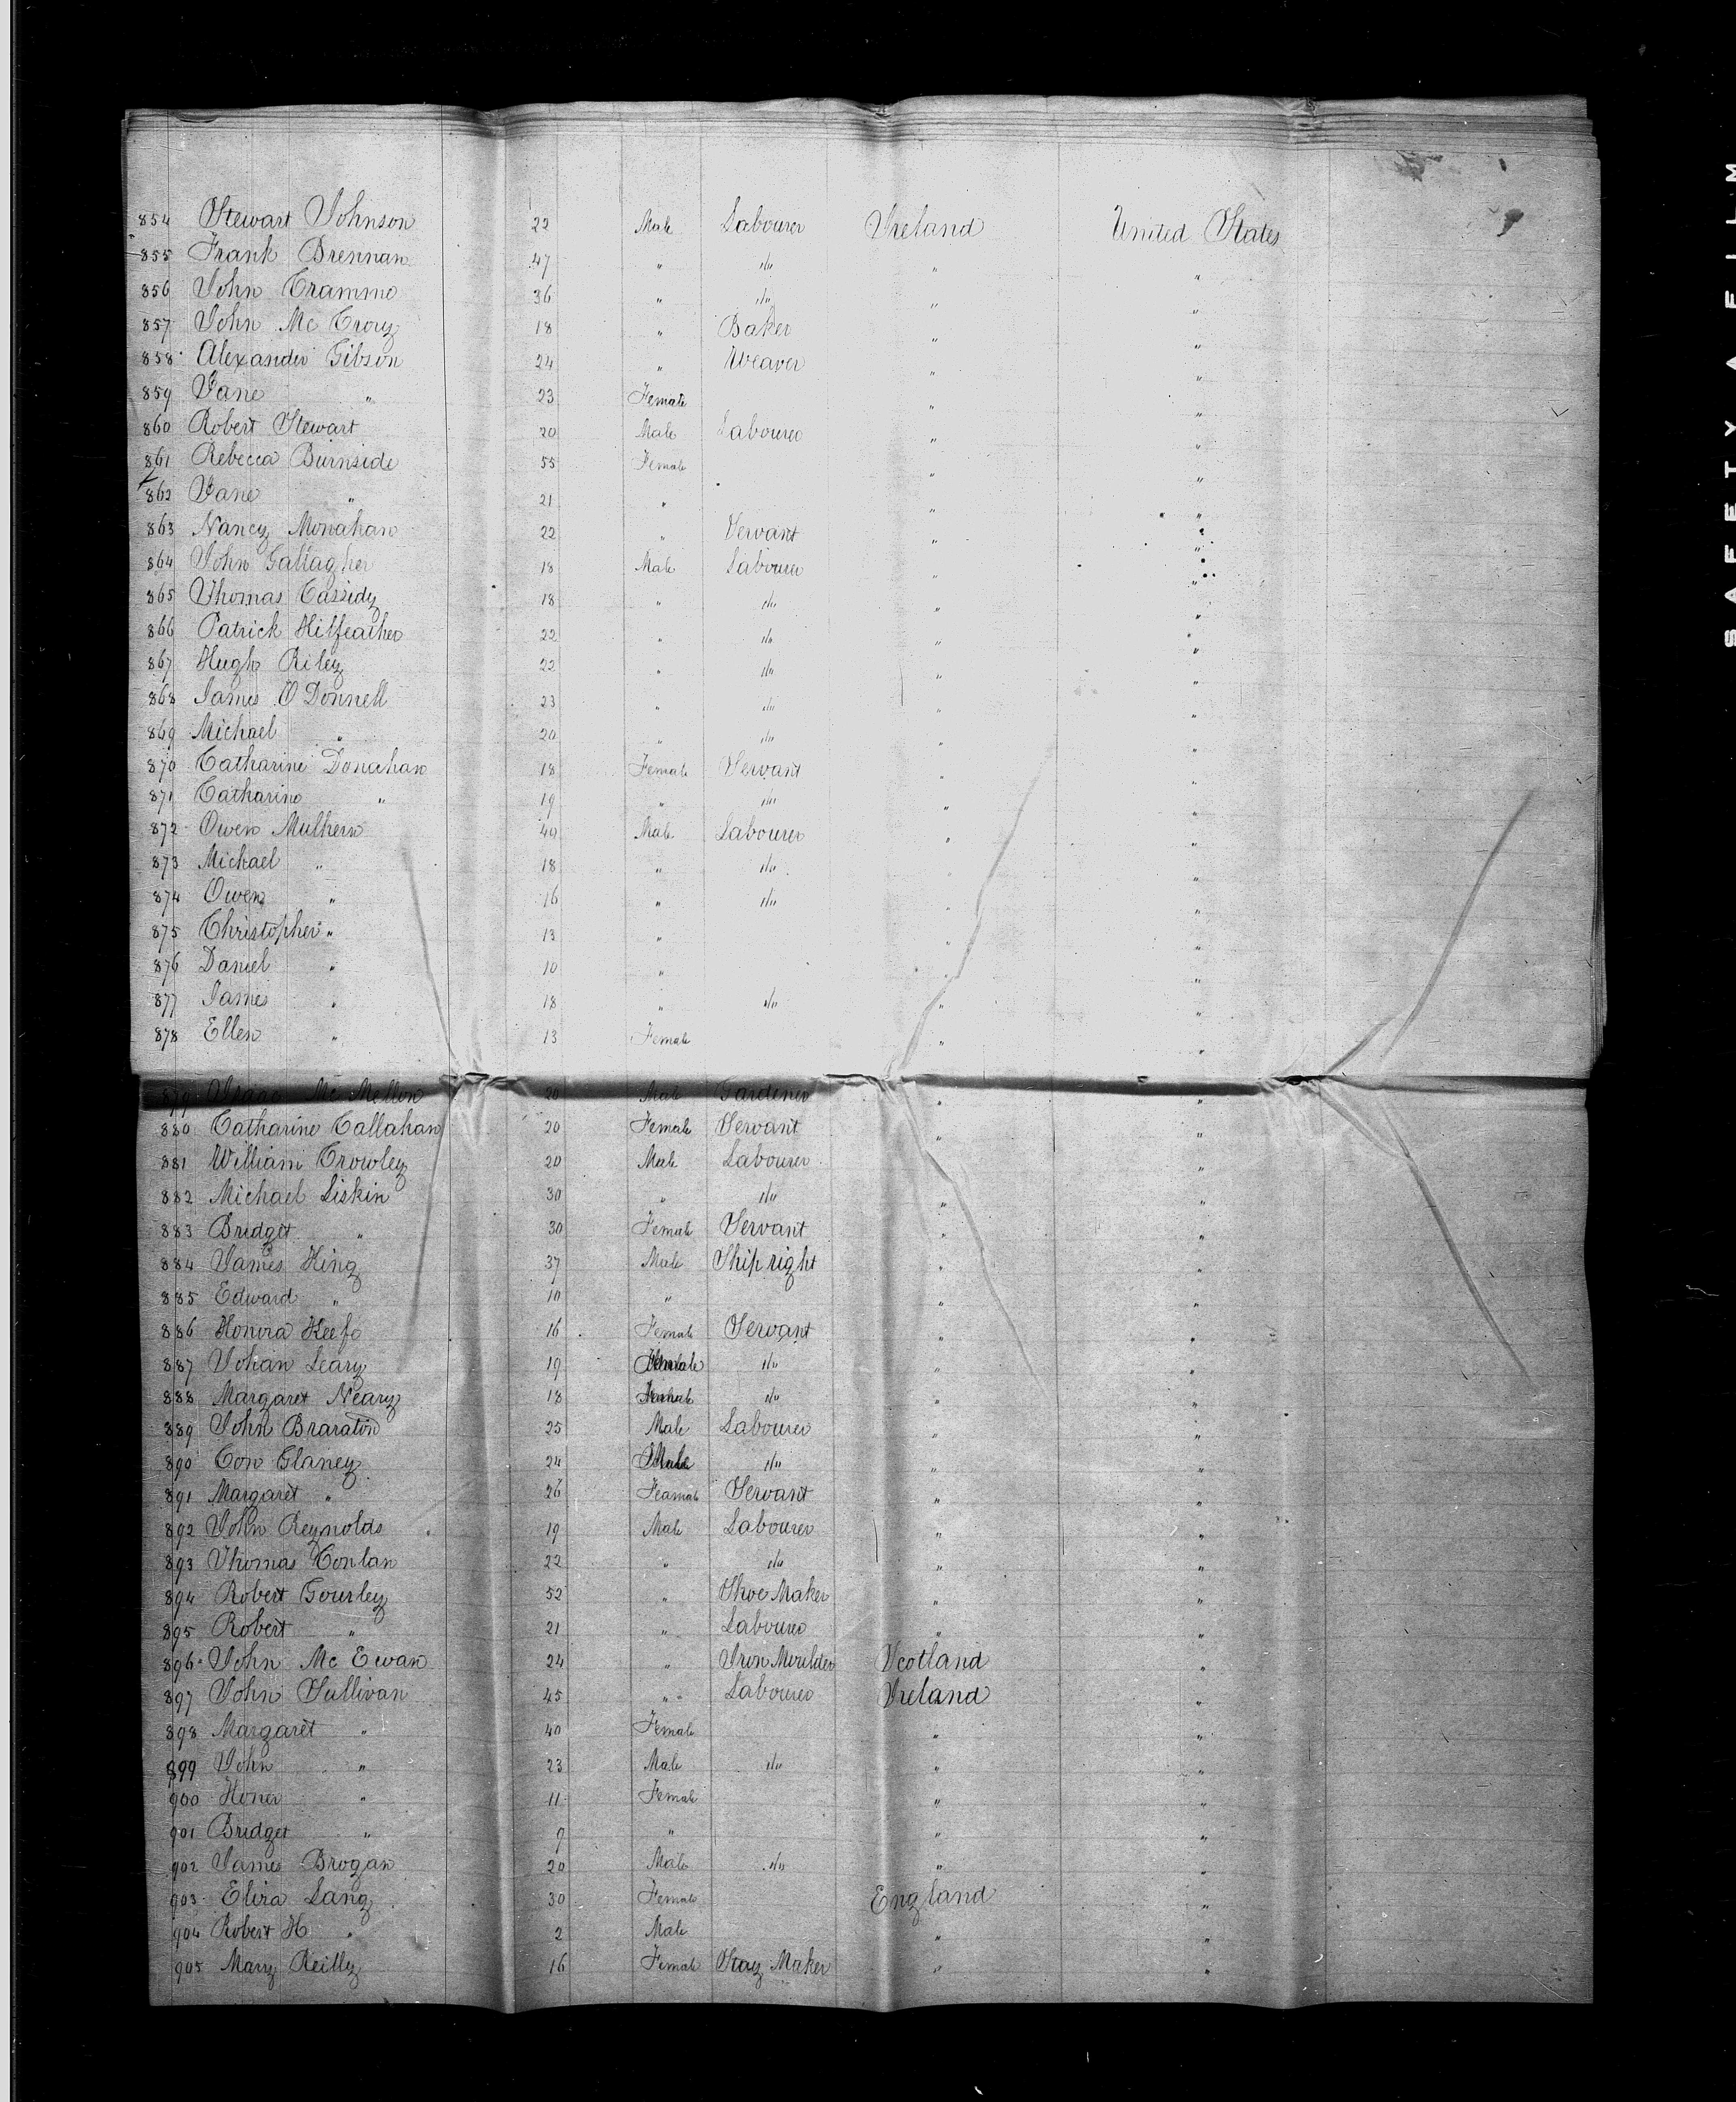 854 Stewart Johnson 22 Male Labourer Ireland United States
855 Frank Brennan 47 " do " "
856 John Crammo 36 " do " "
857 John Mc Crory 18 " Baker " "
858 Alexander Gibson 24 " Weaver " "
859 Jane " 23 Female " "
860 Robert Stewart 20 Male Labourer " "
861 Rebecca Burnside 55 Female " "
862 Jane " 21 " " "
863 Nancy Monahan 22 " Servant " "
864 John Gallagher 18 Male Labourer " "
865 Thomas Cassidy 18 " do " "
866 Patrick Kilfeather 22 " do " "
867 Hugh Riley 22 " do " "
868 James O Donnell 23 " do " "
869 Michael " 20 " do " "
870 Catharine Donahan 18 Female Servant " "
871 Catharine " 19 " do " "
872 Owen Mulhern 49 Male Labourer " "
873 Michael " 18 " do " "
874 Owen " 16 " do " "
875 Christopher " 13 " " "
876 Daniel " 10 " " "
877 James " 18 " do " "
878 Ellen " 13 Female " "
879 Isaac Mc Mellon 20 Male Gardener " "
880 Catharine Callahan 20 Female Servant " "
881 William Crowley 20 Male Labourer " "
882 Michael Liskin 30 " do " "
883 Bridget " 30 Female Servant " "
884 James King 37 Male Ship right " "
885 Edward " 10 " " "
886 Honora Keefe 16 Female Servant " "
887 Johan Leary 19 Female do " "
888 Margaret Neary 18 Female do " "
889 John Braraton 25 Male Labourer " "
890 Con Glaney 24 Male do " "
891 Margaret " 26 Feamale Servant " "
892 John Reynolds 19 Male Labourer " "
893 Thomas Conlan 22 " do " "
894 Robert Gourley 52 " Shoe Maker " "
895 Robert " 21 " Labourer " "
896 John Mc Ewan 24 " Iron Moulder Scotland "
897 John Sullivan 45 " Labourer Ireland "
898 Margaret " 40 Female " "
899 John " 23 Male do " "
900 Honer " 11 Female " "
901 Bridget " 9 " " "
902 James Brogan 20 Male do " "
903 Eliza Lang 30 Female England "
904 Robert H " 2 Male " "
905 Mary Reilly 16 Female Stay Maker " "
SAFETY FILM